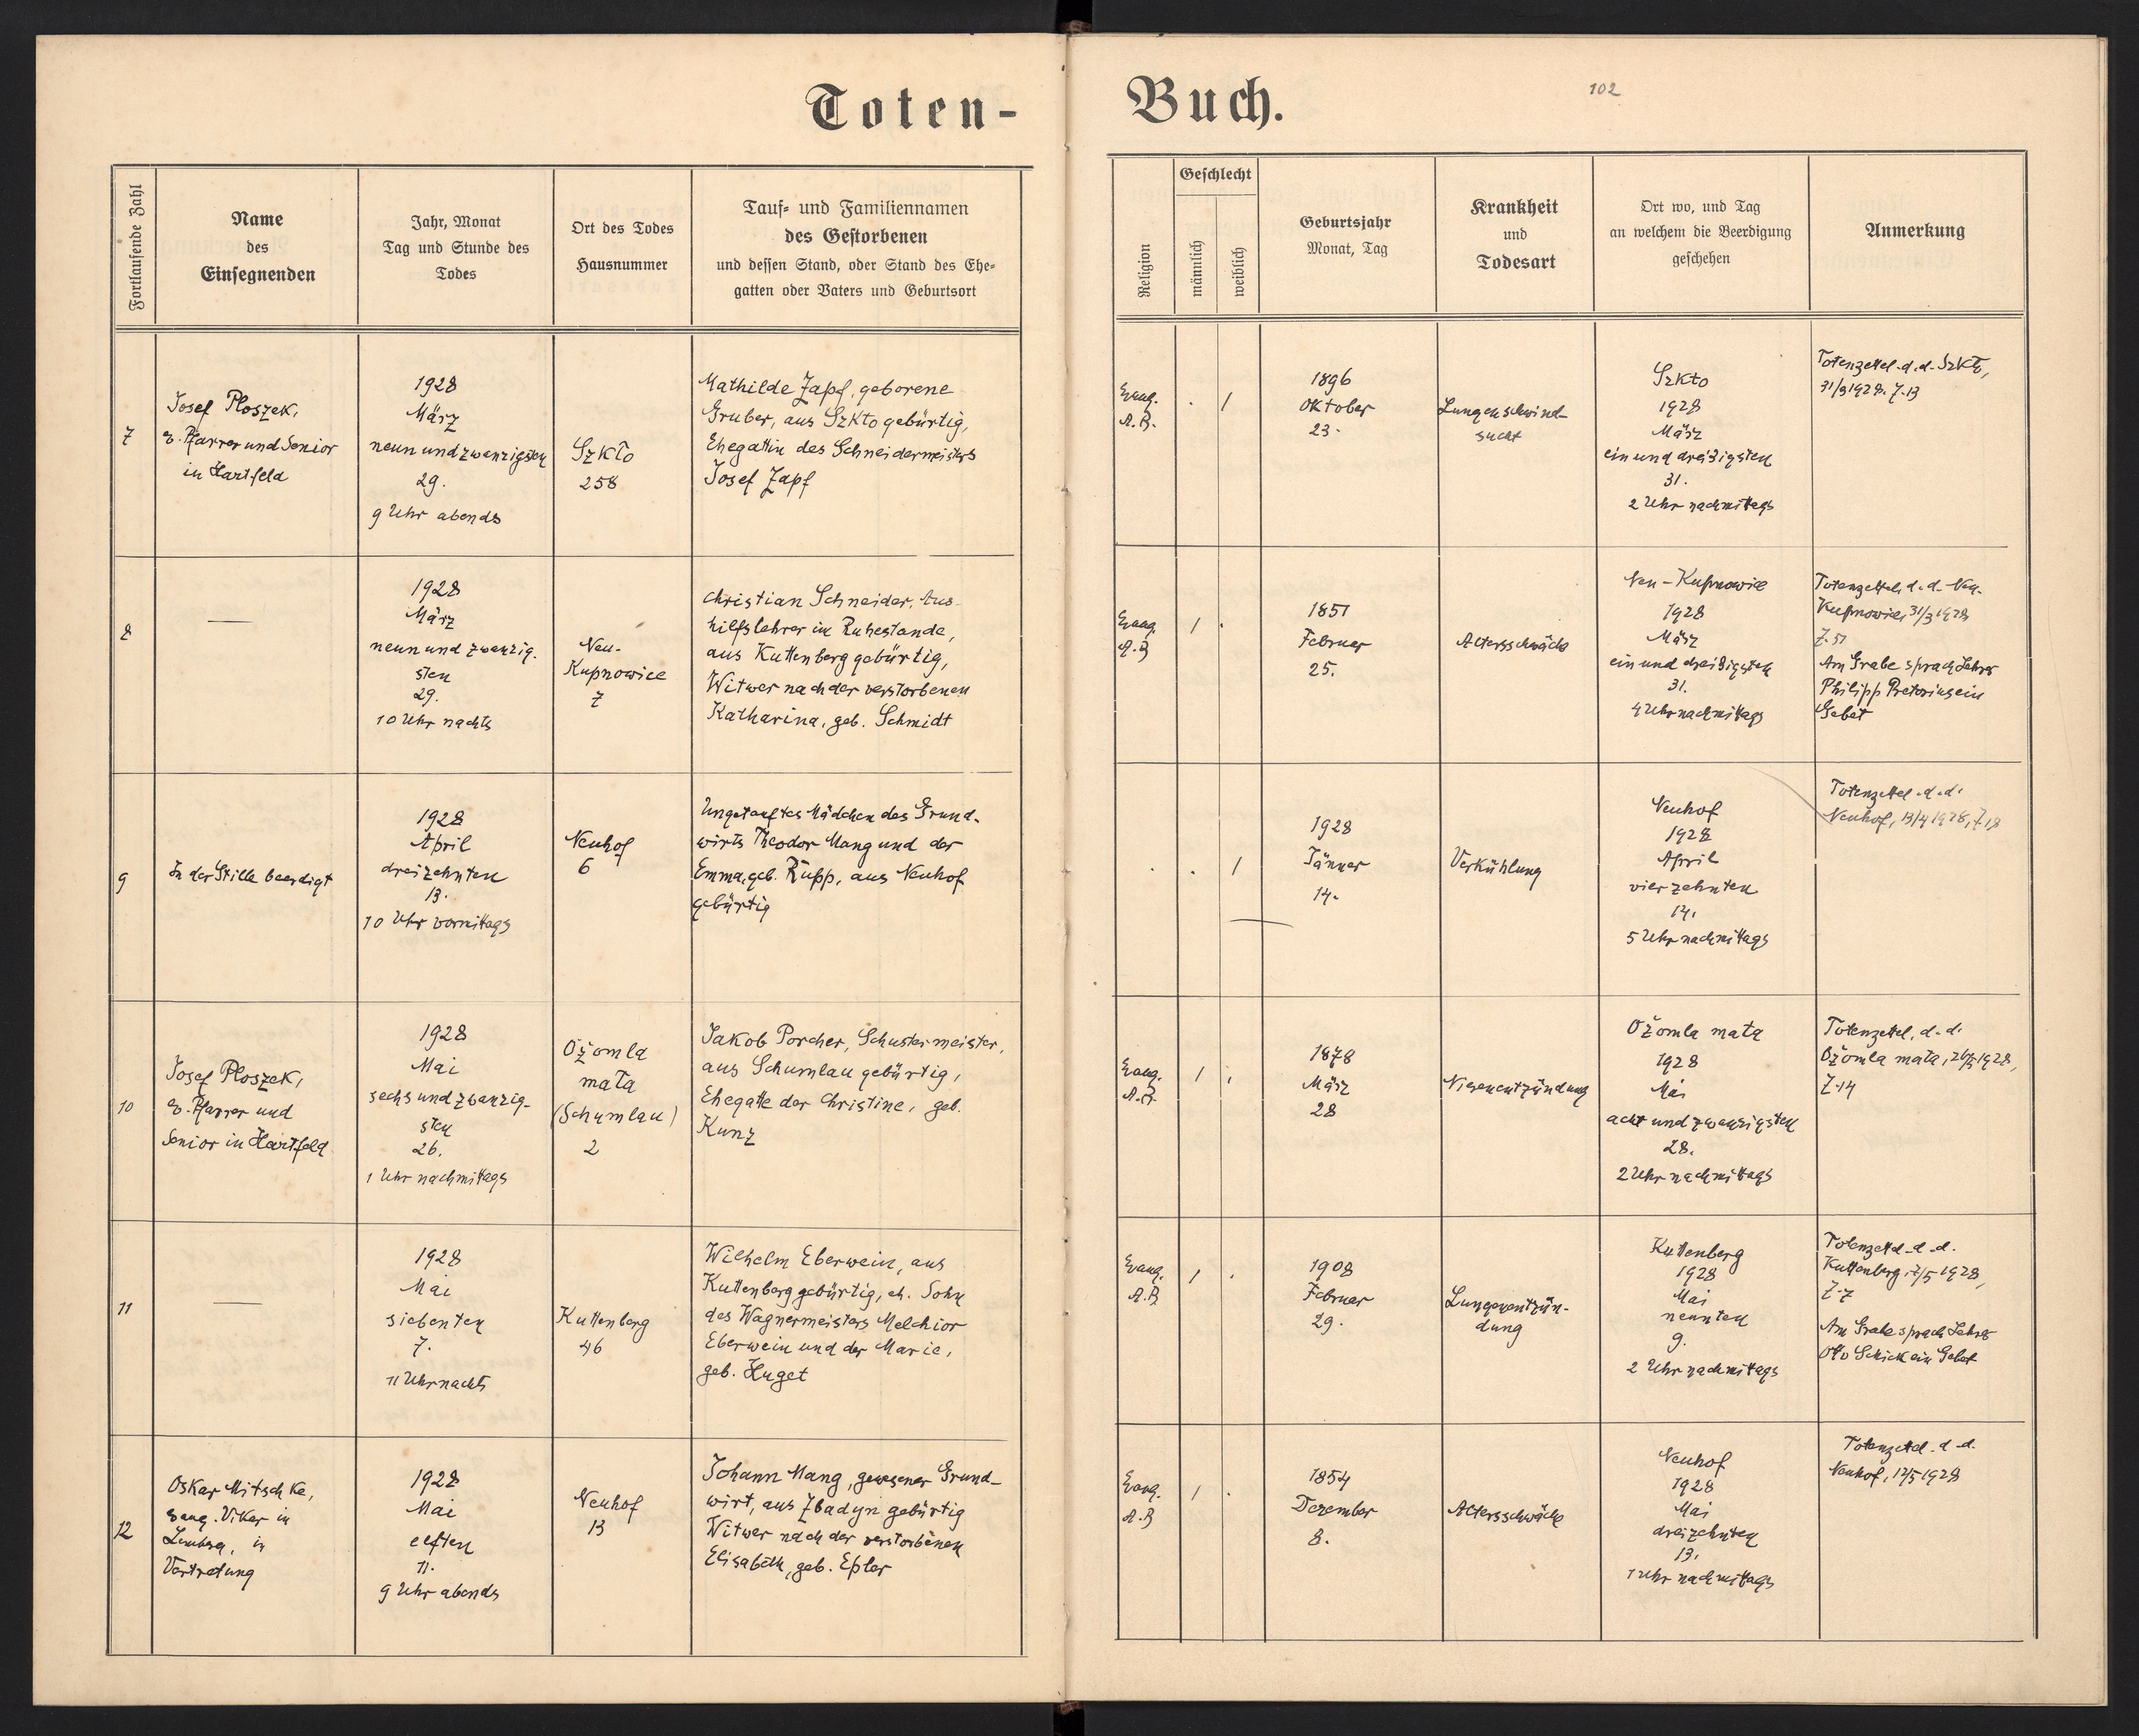 Toten-
Buch.
102
Fortlaufende Zahl
Name
des
Einsegnenden
Jahr, Monat
Tag und Stunde des
Todes
Ort des Todes
Hausnummer
Tauf- und Familiennamen
des Gestorbenen
und dessen Stand, oder Stand des Ehe-
gatten oder Vaters und Geburtsort
Religion
Geschlecht
männlich
weiblich
Geburtsjahr
Monat, Tag
Krankheit
und
Todesart
Ort wo, und Tag
an welchem die Beerdigung
geschehen
Anmerkung
7
Josef Ploszek,
ev. Pfarrer und Senior
in Hartfeld
1928
März
neunundzwanzigsten
29.
9 Uhr abends
Szkło
258
Mathilde Zapf, geborene
Gruber, aus Szkło gebürtig,
Ehegattin des Schneidermeisters
Josef Zapf
Evang.
A.B.
. /
1896
Oktober
23.
Lungenschwind-
sucht
Szkło
1928
März
einunddreißigsten
31.
2 Uhr nachmittags
Totenzettel d.d. Szkło,
31/3 1928. Z.13
8
—
1928
März
neunundzwanzig-
sten
29.
10 Uhr nachts
Neu-
Kupnowice
7
Christian Schneider, Aus-
hilfslehrer im Ruhestande,
aus Kuttenberg gebürtig,
Witwer nach der verstorbenen
Katharina, geb. Schmidt
Evang.
A.B
/ .
1851
Februar
25.
Altersschwäche
Neu-Kupnowice
1928
März
einunddreißigsten
31.
4 Uhr nachmittags
Totenzettel, d.d. Neu-
Kupnowice, 31/3 1928
Z.51
Am Grabe sprach Lehrer
Philipp Pretorius ein
Gebet
9
In der Stille beerdigt
1928
April
dreizehnten
13.
10 Uhr vormittags
Neuhof
6
Ungetauftes Mädchen des Grund-
wirts Theodor Mang und der
Emma, geb. Rupp, aus Neuhof
gebürtig
. . /
1928
Jänner
14.
Verkühlung
Neuhof
1928
April
vierzehnten
14.
5 Uhr nachmittags
Totenzettel d.d.
Neuhof, 13/4 1928, Z.18
10
Josef Ploszek,
ev. Pfarrer und
Senior in Hartfeld
1928
Mai
sechsundzwanzig-
sten
26.
1 Uhr nachmittags
Ożomla
mała
(Schumlau)
2
Jakob Porcher, Schustermeister,
aus Schumlau gebürtig,
Ehegatte der Christine, geb.
Kunz
Evang.
A.B.
/ .
1878
März
28
Nierenentzündung
Ożomla mała
1928
Mai
achtundzwanzigsten
28.
2 Uhr nachmittags
Totenzettel, d.d.
Ożomla mała, 26/5 1928,
Z.14
11
—
1928
Mai
siebenten
7.
11 Uhr nachts
Kuttenberg
46
Wilhelm Eberwein, aus
Kuttenberg gebürtig, eh. Sohn
des Wagnermeisters Melchior
Eberwein und der Marie,
geb. Huget
Evang.
A.B
/ .
1908
Februar
29.
Lungenentzün-
dung
Kuttenberg
1928
Mai
neunten
9.
2 Uhr nachmittags
Totenzettel d.d.
Kuttenberg, 7/5 1928,
Z.7
Am Grabe sprach Lehrer
Otto Schick ein Gebet
12
Oskar Mitschke,
evang. Vikar in
Lemberg, in
Vertretung
1928
Mai
elften
11.
9 Uhr abends
Neuhof
13
Johann Mang, gewesener Grund-
wirt, aus Zbadyn gebürtig
Witwer nach der verstorbenen
Elisabeth, geb. Epler
Evang.
A.B
/ .
1854
Dezember
8.
Altersschwäche
Neuhof
1928
Mai
dreizehnten
13.
1 Uhr nachmittags
Totenzettel d.d.
Neuhof, 12/5 1928